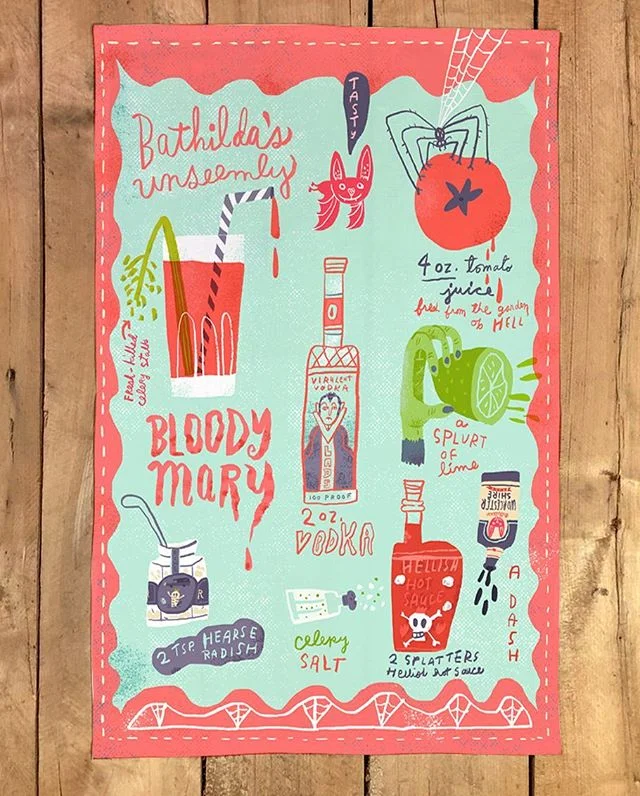 Bathilda's
unseemly
TASTY
4 oz. tomato
juice
bred from the garden
of HELL
Fresh-killed
celery stalk
BLOODY
MARY
VIRULENT
VODKA
VLADS
100 PROOF
2 oz.
VODKA
a
SPLURT
of
lime
WORCESTER
SHIRE
A DASH
HELLISH
HOT
SAUCE
R
2 TSP. HEARSE
RADISH
celery
SALT
2 SPLATTERS
Hellish Hot Sauce